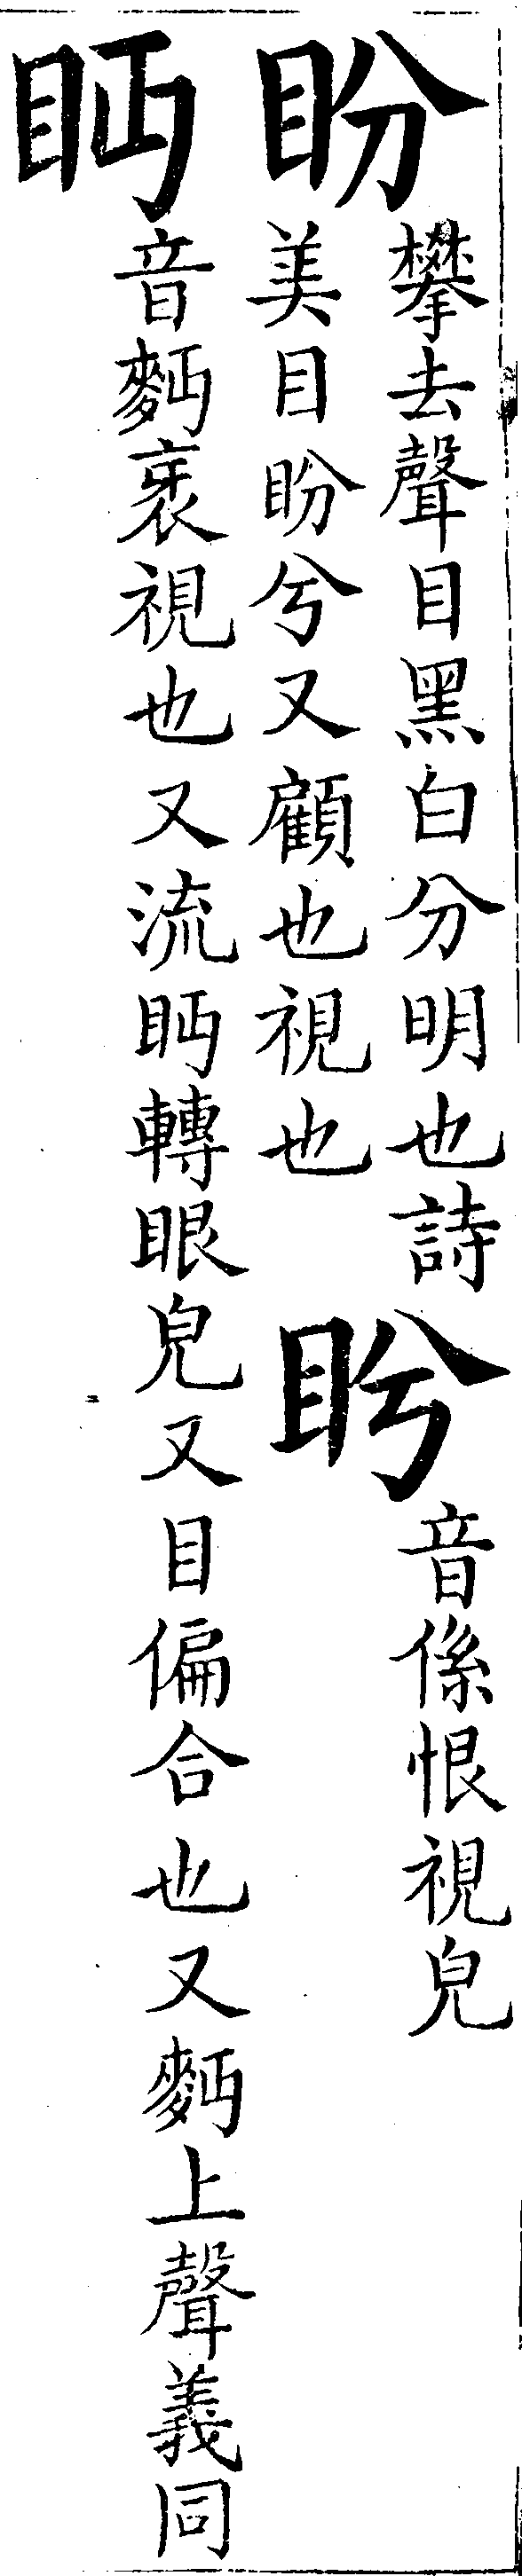 盼
攀去聲目黑白分明也詩
美目盼兮又顧也視也
盻
音係恨視皃
眄
音麪衺視也又流眄轉眼皃又目偏合也又麪上聲義同